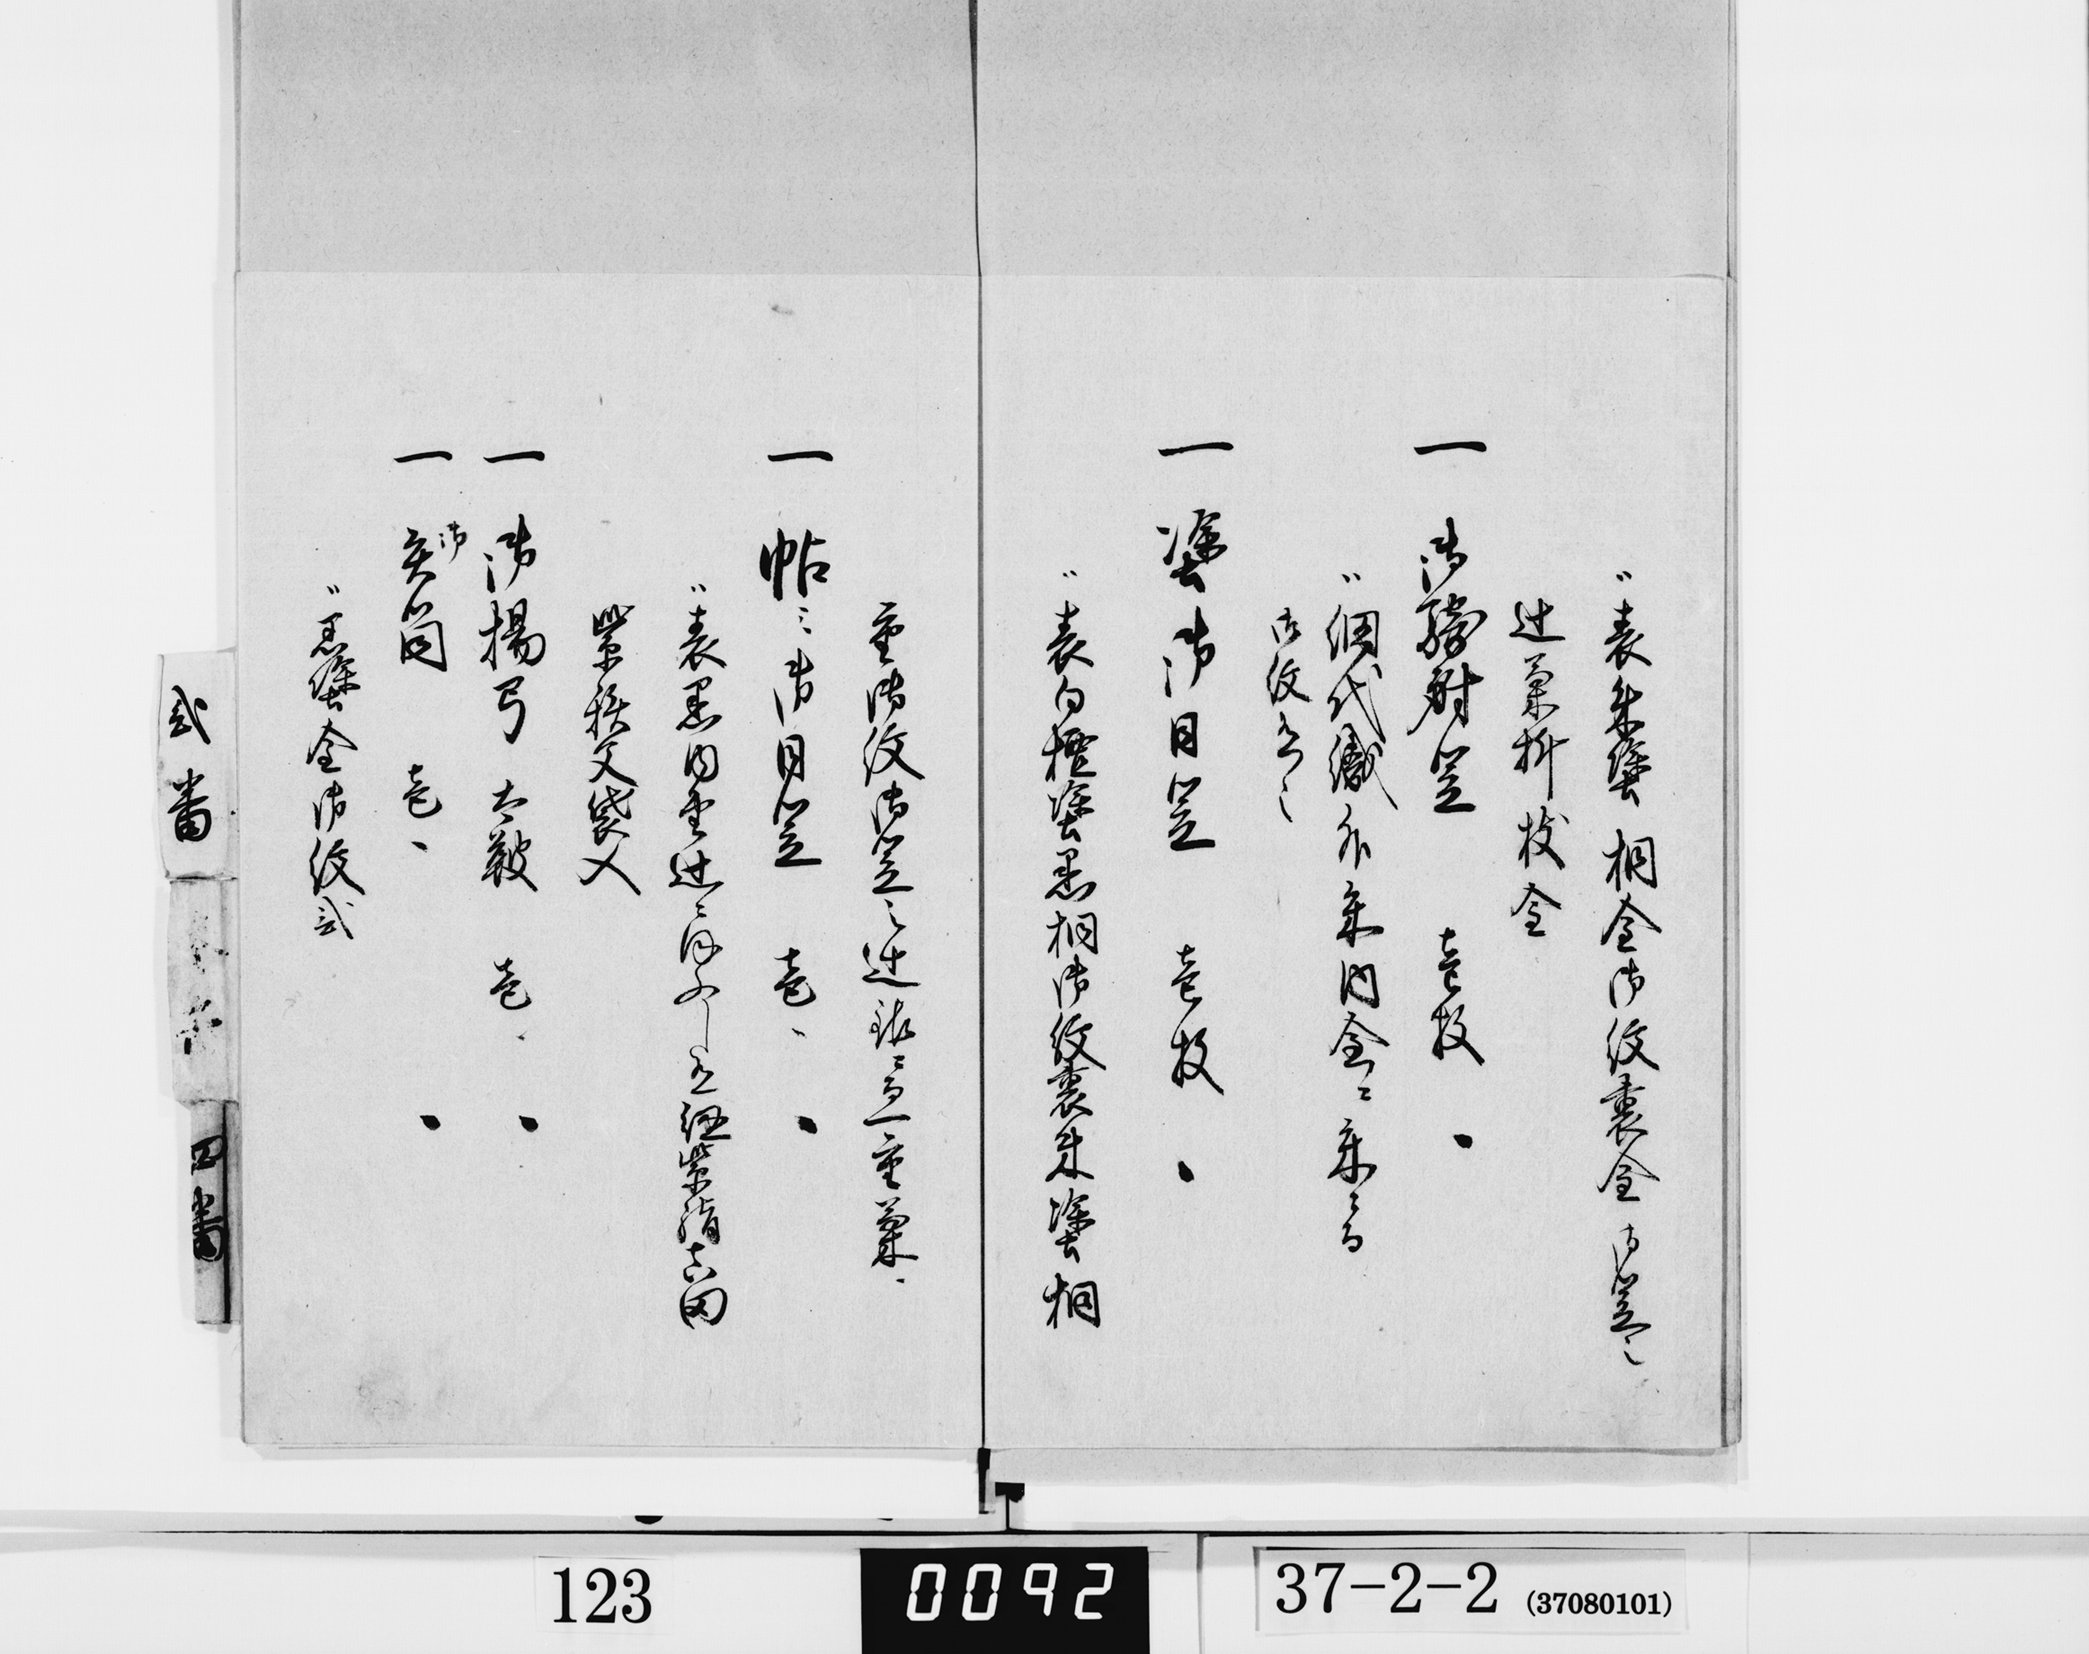 〃表朱塗桐金御紋裏金御笠之
辻菊折枝金
一 御騎射笠 壱枚
〃網代織外朱内金ニ朱ニ而
御紋有之
一 塗御目笠 壱枚
〃表白檀塗黒桐御紋裏朱塗桐
重御紋御笠之辻銀ニ而一重菊、
一 帖ミ御目笠 壱、
〃表黒内金辻ニ 有紐紫絹真田
紫綾文袋入
一 御楊弓 大鞁 壱、
一 御矢筒 壱、
〃黒塗金御紋弐
弐番
四番
123
0092
37-2-2 (37080101)